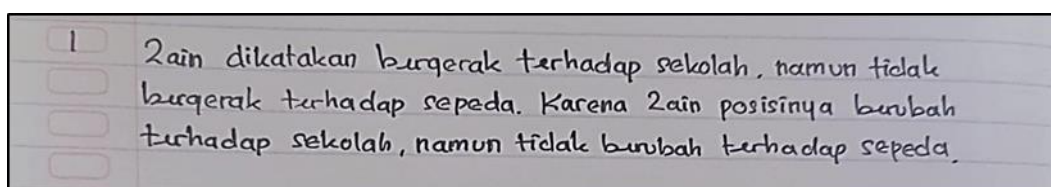 1 Zain dikatakan bergerak terhadap sekolah, namun tidak
bergerak terhadap sepeda. Karena Zain posisinya berubah
terhadap sekolah, namun tidak berubah terhadap sepeda.